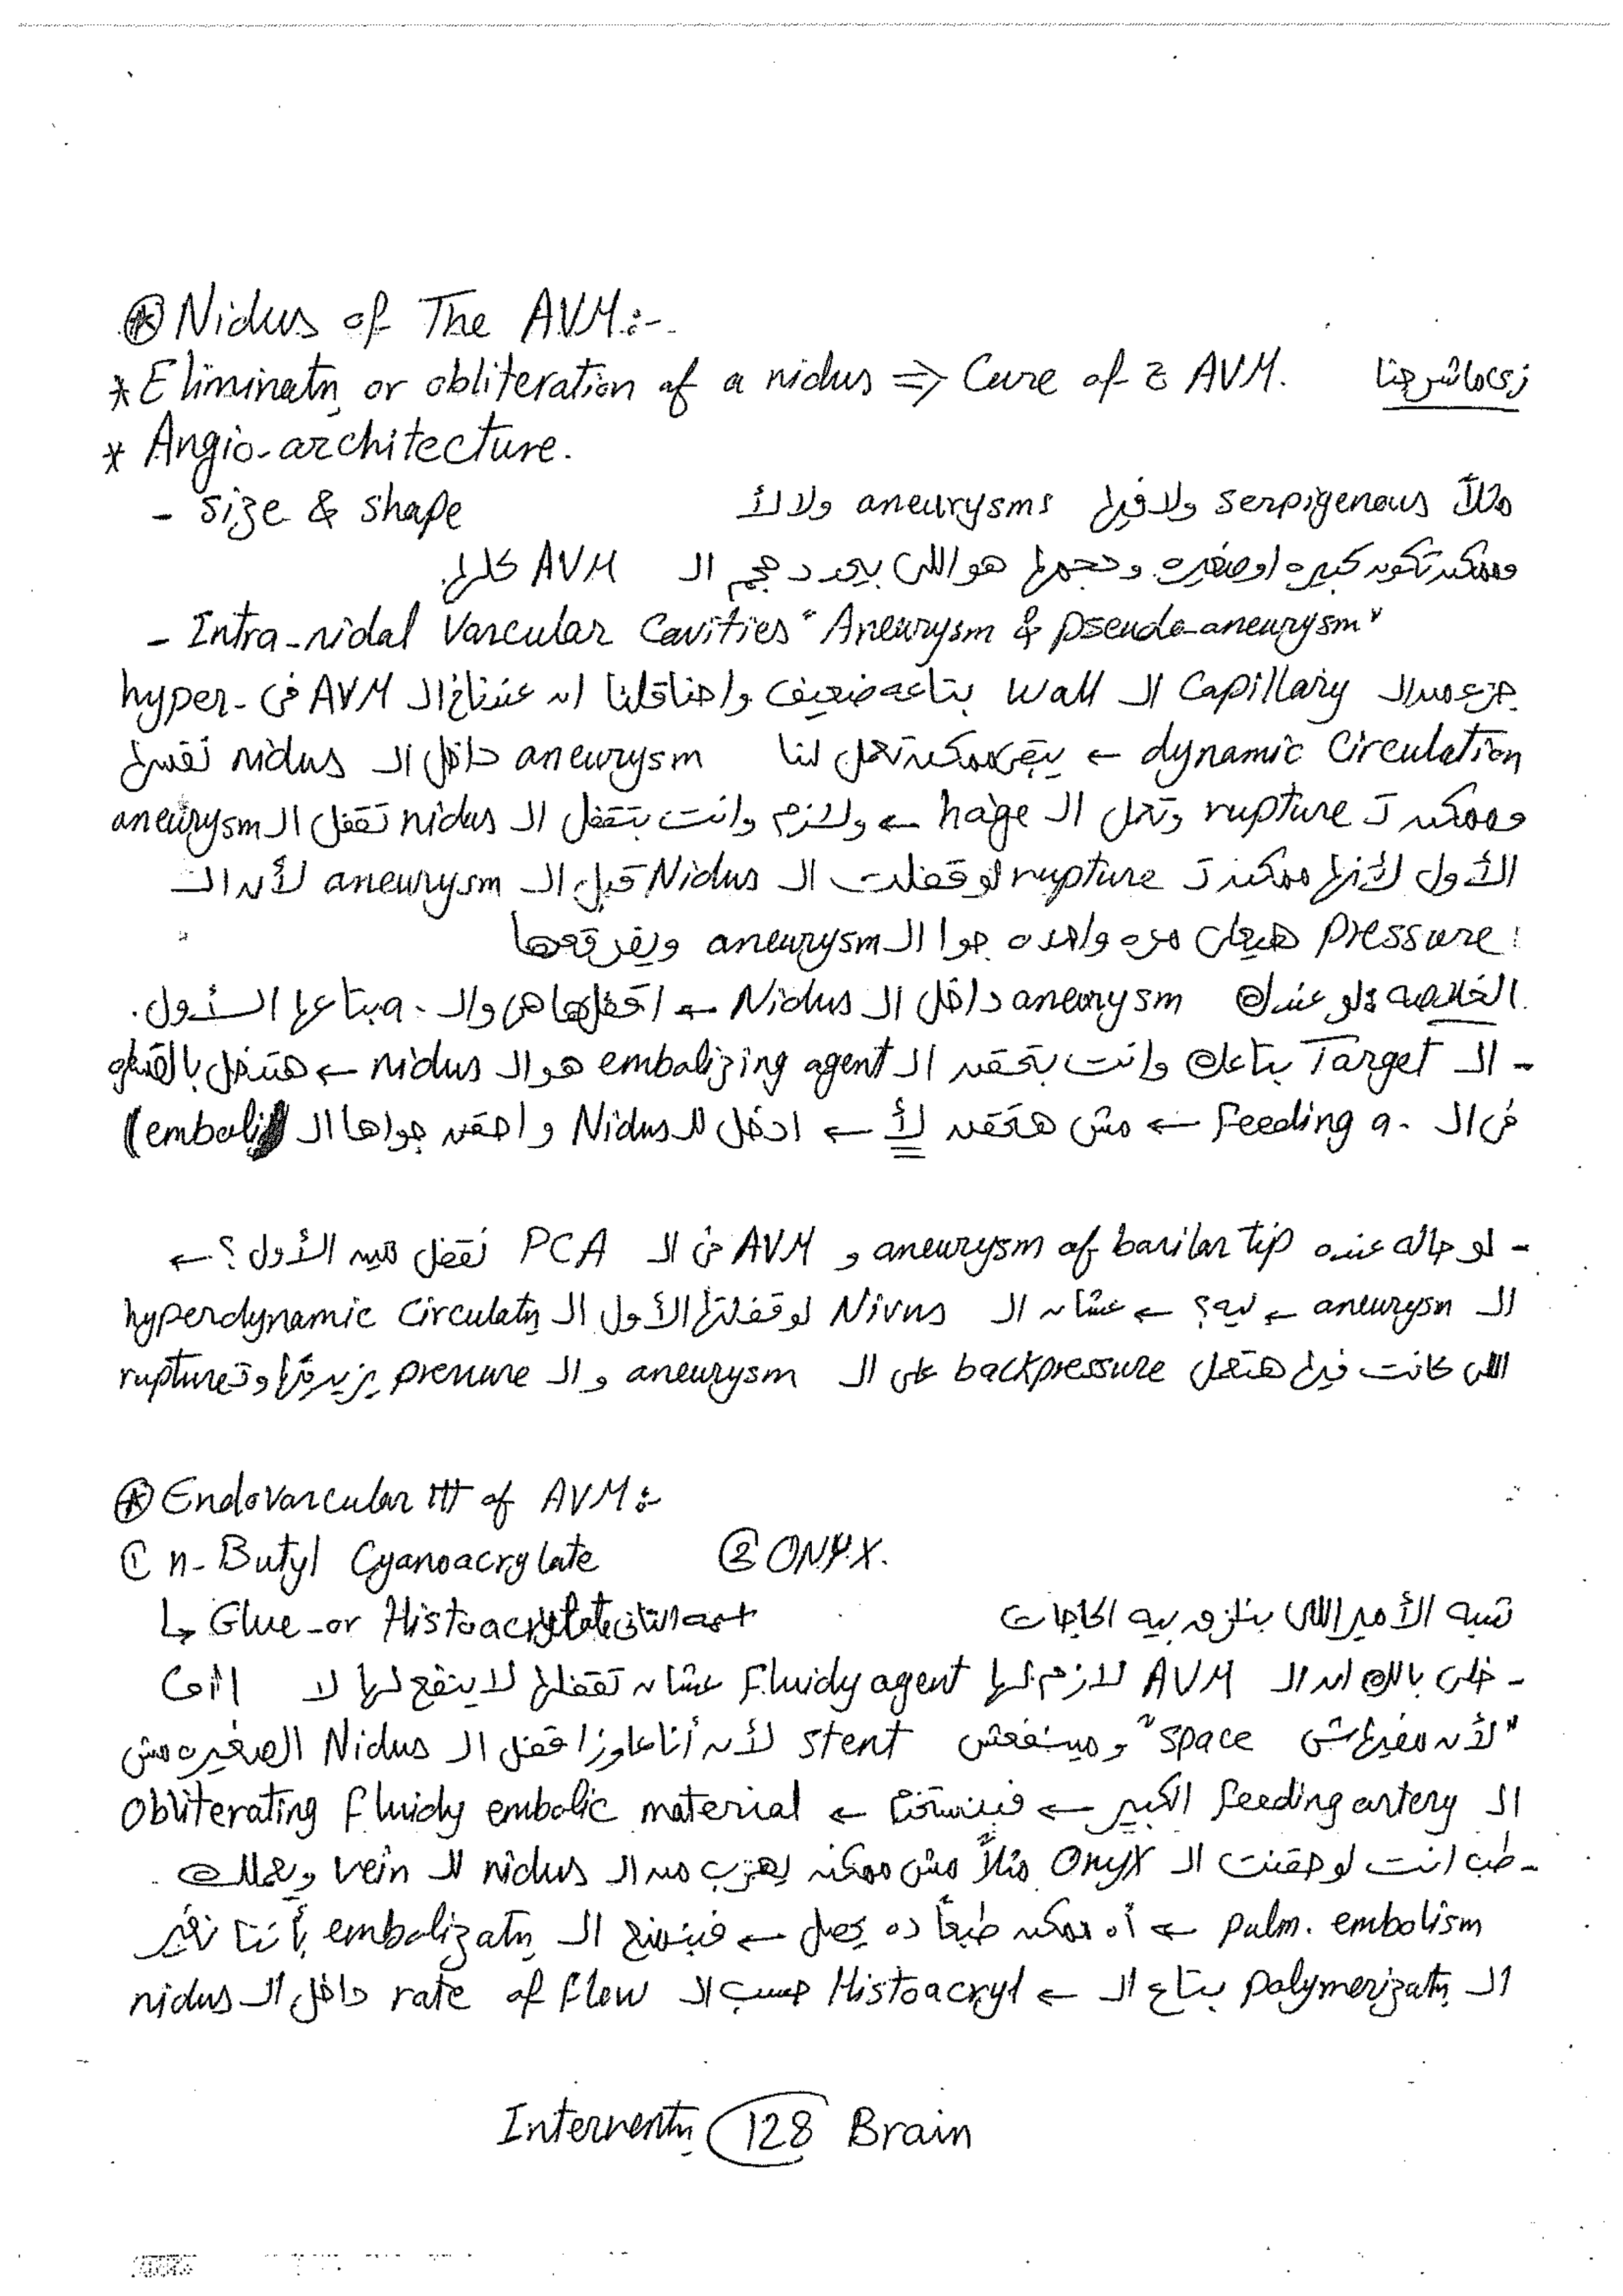 ⊛ Nidus of The AVM:-
* Eliminatn or obliteration of a nidus ⇒ Cure of z AVM. زى ما شرحنا
* Angio-architecture.
- Size & shape مثلاً serpigenous ولا فيها aneurysms ولا لأ
وممكن تكون كبيره او صغيره وحجمها هو اللى بيحدد حجم الـ AVM كلها.
- Intra-nidal Vascular Cavities "Aneurysm & pseudo-aneurysm"
جزء من الـ Capillary الـ wall بتاعه ضعيف واحنا قلنا ان عندنا الـ AVM فى hyper-
dynamic Circulation ← يبقى ممكن تعمل لنا aneurysm داخل الـ nidus نفسها
وممكن تـ rupture وتعمل الـ hage ← ولازم وانت بتقفل الـ nidus تقفل الـ aneurysm
الأول لأنها ممكن تـ rupture لو قفلت الـ Nidus قبل الـ aneurysm لأن الـ
pressure هيعلى مره واحده جوا الـ aneurysm ويفرقعها
الخلاصه: لو عندك aneurysm داخل الـ Nidus ← اقفلها هى والـ a. بتاعها الأول.
- الـ Target بتاعك وانت بتحقن الـ embolizing agent هو الـ nidus ← هتدخل بالقسطره
فى الـ Feeding a. ← مش هتحقن لأ ← ادخل للـ Nidus واحقن جواها الـ (emboli
- لو حاله عنده aneurysm of basilar tip و AVM فى الـ PCA نقفل مين الأول؟ ←
الـ aneurysm ← ليه؟ ← عشان الـ Nivus لو قفلتها الأول الـ hyperdynamic Circulatn
اللى كانت فيها هتعمل backpressure على الـ aneurysm والـ pressure يزيد فيها وتـ rupture
⊛ Endovascular ttt of AVM:-
① n-Butyl Cyanoacrylate ② ONYX.
↳ Glue-or Histoacryl شبه الأمير اللى بنلزق بيه الحاجات
- خلى بالك ان الـ AVM لازم لها Fluidy agent عشان تقفلها لا ينفع لها لا
"لأن مفيهاش space" ومينفعش stent لأن أنا عاوز اقفل الـ Nidus الصغيره مش
الـ feeding artery الكبير ← فبنستخدم ← Obliterating Fluidy embolic material
- طب انت لو حقنت الـ Onyx مثلاً مش ممكن يهرب من الـ nidus للـ vein ويعملك
pulm. embolism ← أه ممكن طبعاً ده يحصل ← فبنمنع الـ embolizatn بأننا نغير
الـ polymerizatn بتاع الـ ← Histoacryl حسب الـ rate of flow داخل الـ nidus
Interventn 128 Brain